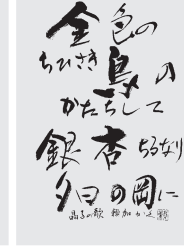 金色の
ちひさき鳥の
かたちして
銀杏ちるなり
夕日の岡に
晶子の歌